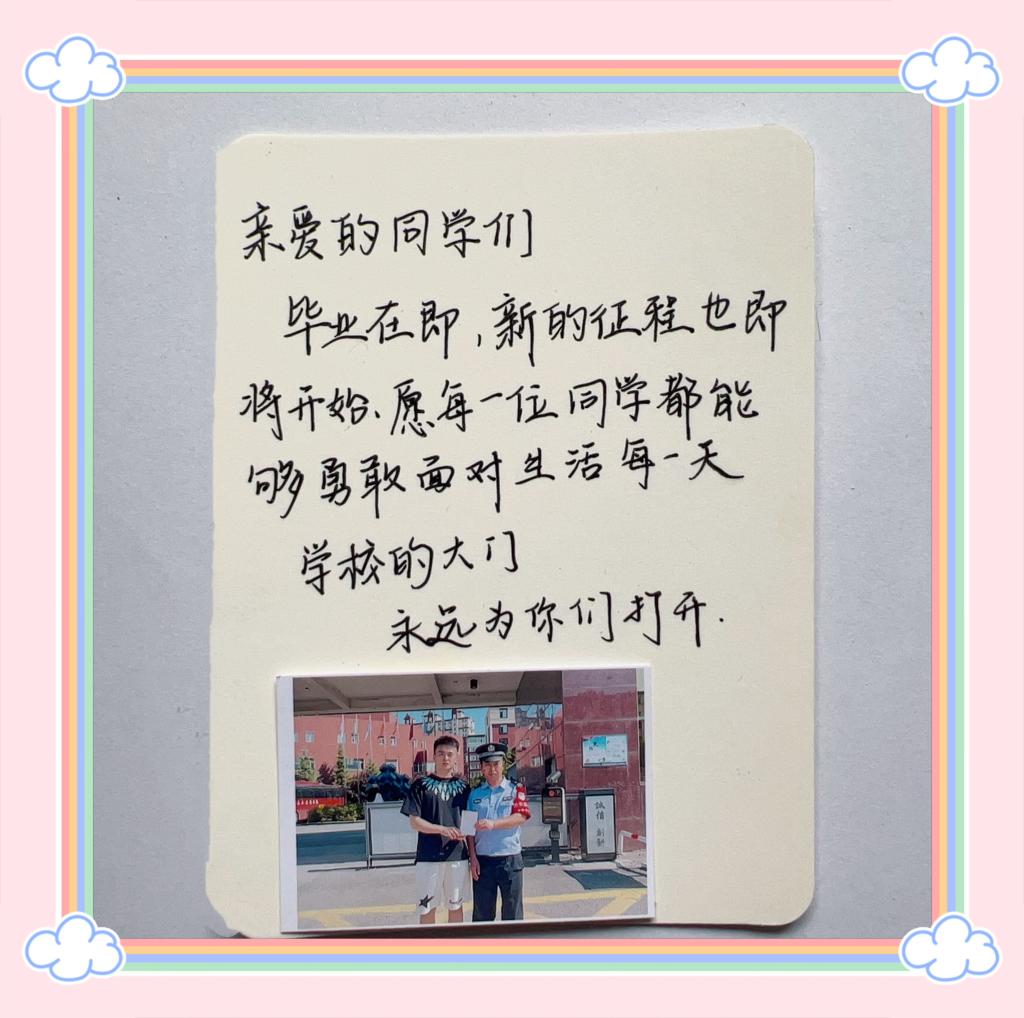 亲爱的同学们
毕业在即,新的征程也即
将开始、愿每一位同学都能
够勇敢面对生活每一天
学校的大门
永远为你们打开.
誠信 創新